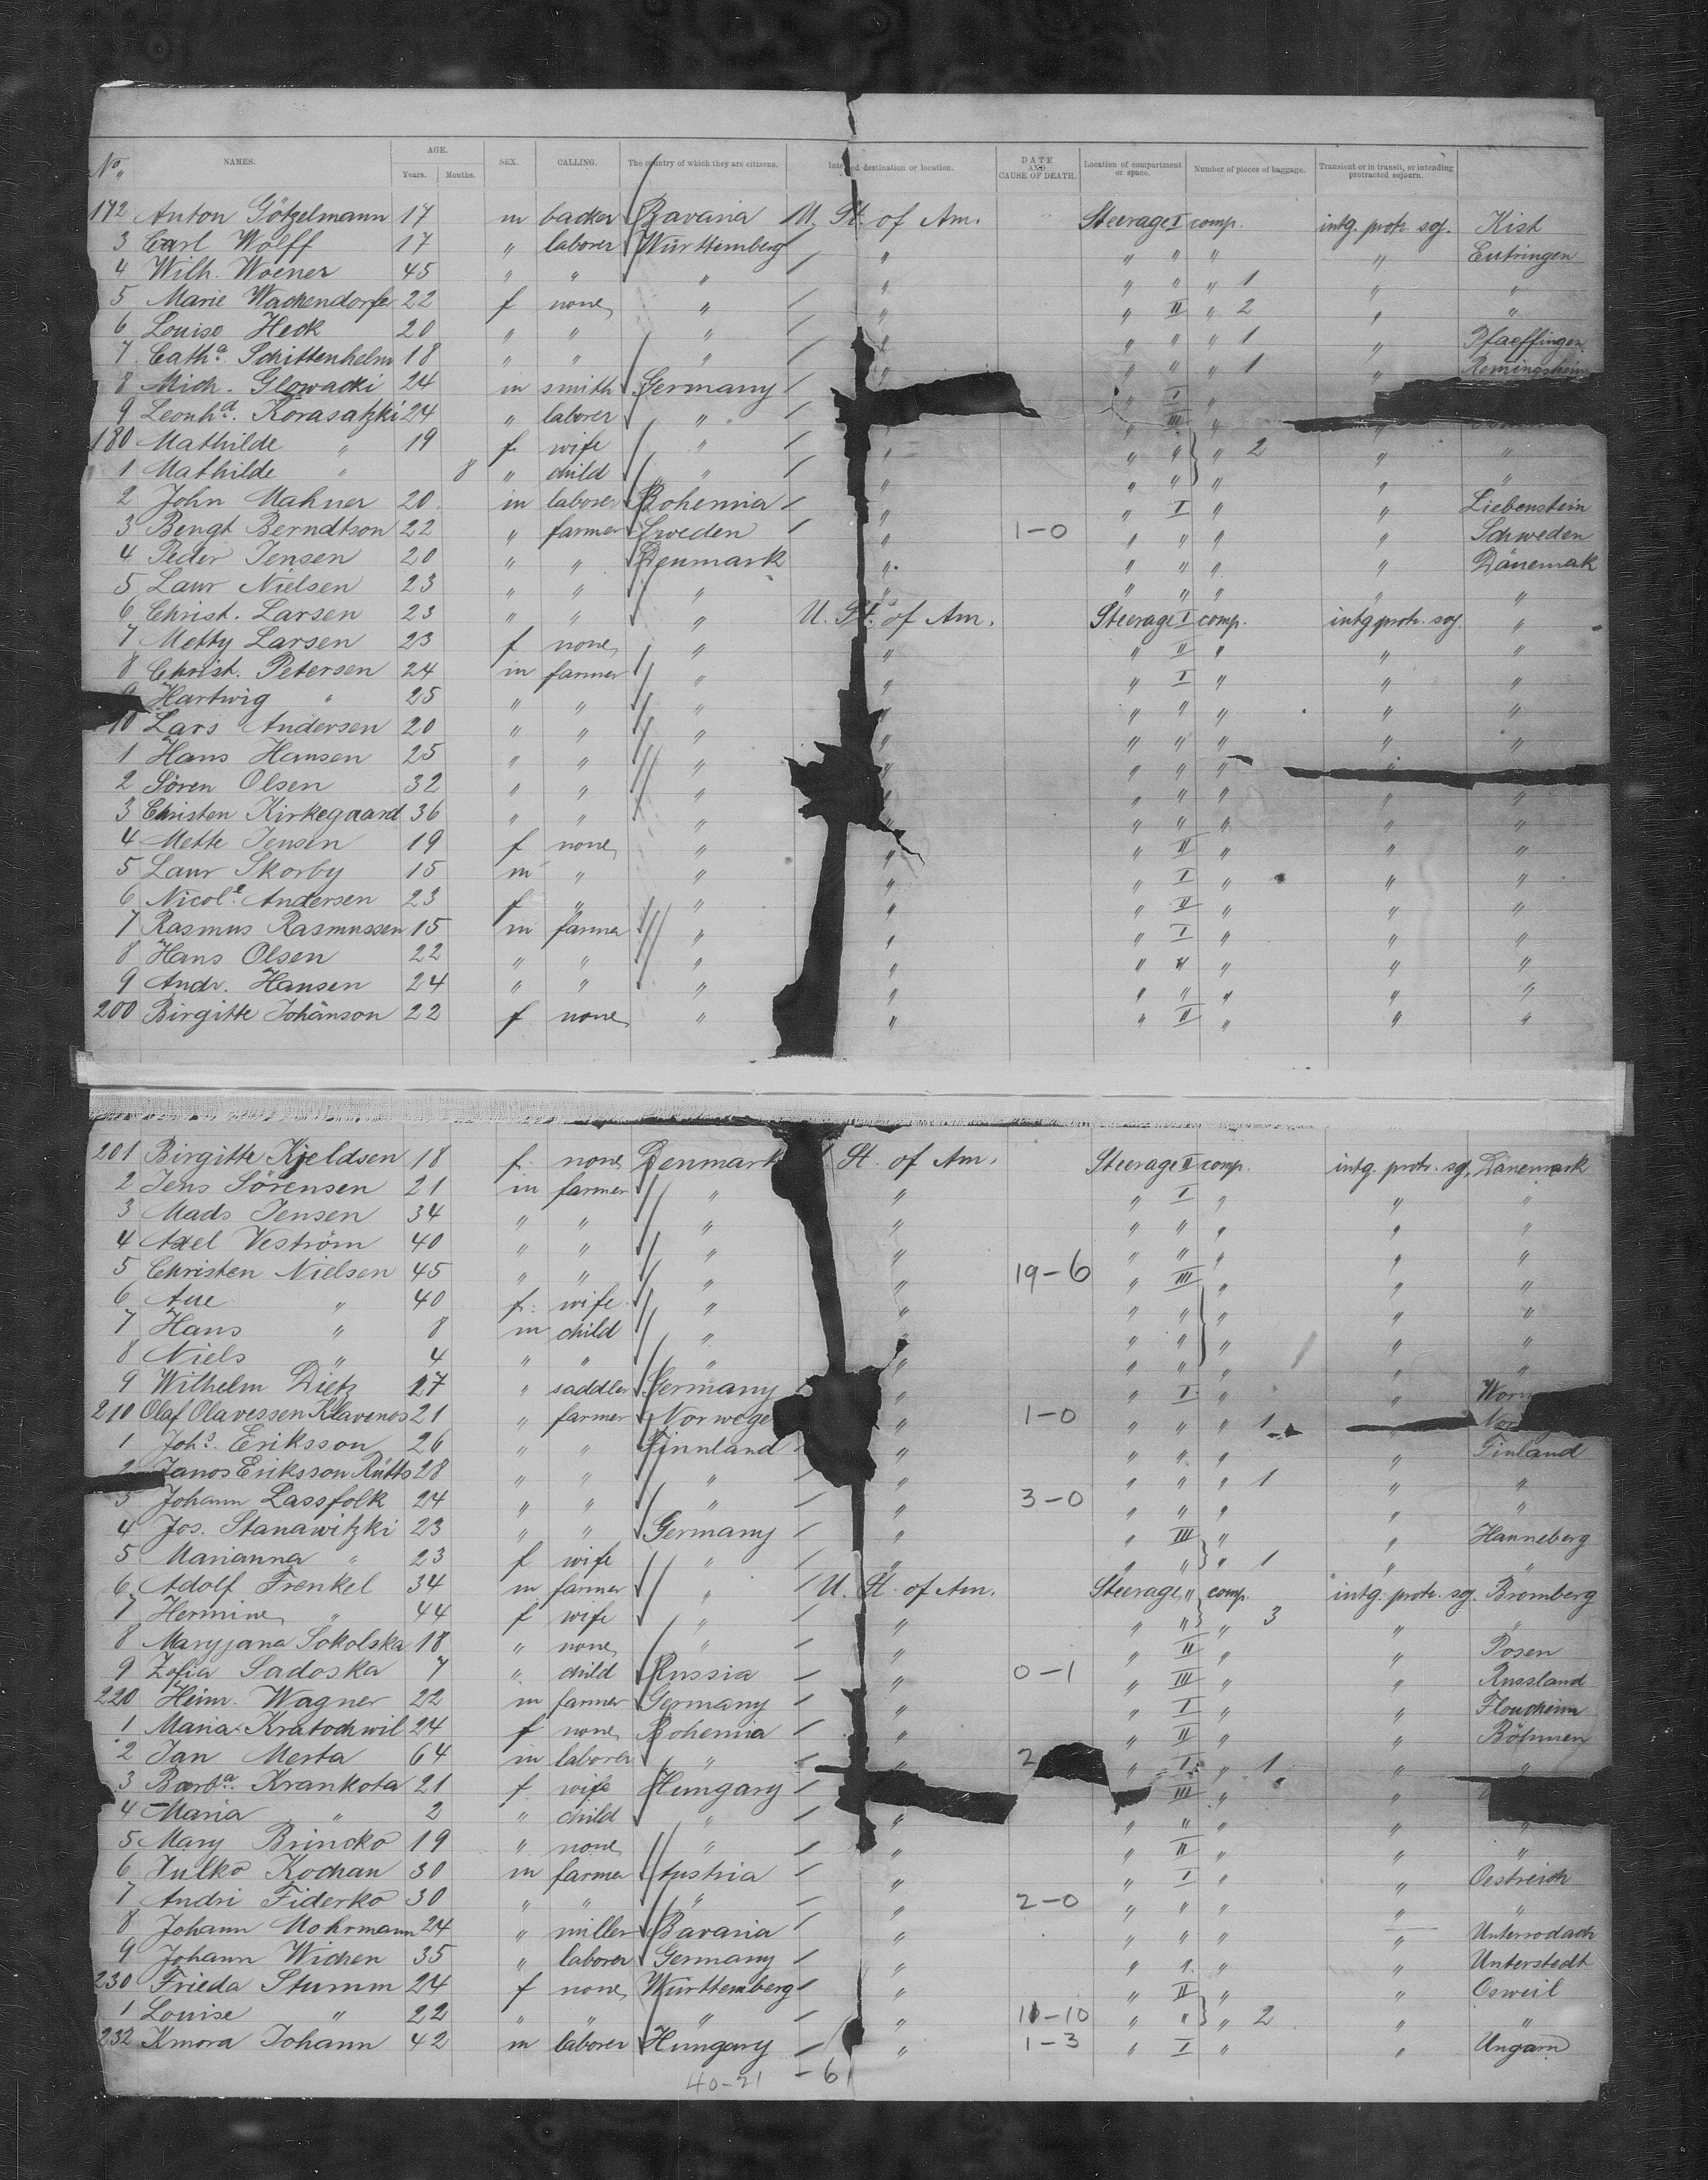 No. NAMES. AGE. Years. Months. SEX. CALLING. The country of which they are citizens. Intended destination or location. DATE AND CAUSE OF DEATH. Location of compartment or space. Number of pieces of baggage. Transient or in transit, or intending protracted sojourn.
172 Anton Götzelmann 17 m backer Bavaria U. St. of Am. Steerage I comp. intg. protr. soj. Kist
3 Carl Wolff 17 " laborer Württemberg " " " " " Eutringen
4 Wilh. Woener 45 " " " " " " " 1 " "
5 Marie Wachendorfer 22 f none " " " II " 2 " "
6 Louise Heck 20 " " " " " " " 1 " Pfaeffingen
7 Catha. Schittenhelm 18 " " " " " " " 1 " Remingsheim
8 Mich. Glowacki 24 m smith Germany " " I "
9 Leonhd. Korasatzki 24 " laborer " " " III " "
180 Mathilde " 19 f wife " " " " " 2 " "
1 Mathilde " 8 " child " " " " " " "
2 John Mahner 20 m laborer Bohemia " " I " " Liebenstein
3 Bengt Berndtson 22 " farmer Sweden " 1-0 " " " " Schweden
4 Peder Jensen 20 " " Denmark " " " " " Dänemak
5 Laur Nielsen 23 " " " " " " " " "
6 Christ. Larsen 23 " " " U. St. of Am. Steerage I comp. intg protr. soj. "
7 Metty Larsen 23 f none " " " II " " "
8 Christ. Petersen 24 m farmer " " " I " " "
9 Hartwig " 25 " " " " " " " " "
10 Lars Andersen 20 " " " " " " " " "
1 Hans Hansen 25 " " " " " " " "
2 Sören Olsen 32 " " " " " " " " "
3 Christen Kirkegaard 36 " " " " " " " " "
4 Mette Jensen 19 f none " " " II " " "
5 Laur Skorby 15 m " " " " I " " "
6 Nicole. Andersen 23 f " " " " II " " "
7 Rasmus Rasmussen 15 m farmer " " " I " " "
8 Hans Olsen 22 " " " " " " " " "
9 Andr. Hansen 24 " " " " " " " " "
200 Birgitte Johanson 22 f none " " " II " " "
201 Birgitte Kjeldsen 18 f. none Denmark St. of Am. Steerage II comp. intg. protr. soj. Dänemark
2 Jens Sörensen 21 m farmer " " " I " " "
3 Mads Jensen 34 " " " " " " " " "
4 Axel Veström 40 " " " " " " " " "
5 Christen Nielsen 45 " " " " 19-6 " III " " "
6 Ane " 40 f. wife " " " " " " "
7 Hans " 8 m child " " " " " " "
8 Niels " 4 " " " " " " " " "
9 Wilhelm Dietz 27 " saddler Germany " " I " "
210 Olaf Olavessen Klavenos 21 " farmer Norwege " 1-0 " " " 1
1 Johs. Eriksson 26 " " Finnland " " " " " Finland
2 Janos Eriksson Rütts 28 " " " " " " " 1 " "
3 Johann Lassfolk 24 " " " " 3-0 " " " " "
4 Jos. Stanawitzki 23 " " Germany " " III " " Hanneberg
5 Marianna " 23 f wife " " " " " 1 " "
6 Adolf Frenkel 34 m farmer " U. St. of Am. Steerage " comp. intg. protr. soj. Bromberg
7 Hermine " 44 f wife " " " " 3 " "
8 Maryjana Sokolska 18 " none " " " II " " Posen
9 Zofia Sadoska 7 " child Russia " 0-1 " III " " Russland
220 Heinr. Wagner 22 m farmer Germany " " I " " Flonheim
1 Maria Kratochwil 24 f none Bohemia " " II " " Böhmen
2 Jan Mesta 64 m laborer " " 2 " I " 1 " "
3 Barba. Krankota 21 f wife Hungary " III " "
4 Maria " 2 " child " " " " " " "
5 Mary Brincko 19 " none " " " II " " "
6 Julko Kochan 30 m farmer Austria " " I " " Oestreich
7 Andri Fiderko 30 " " " " 2-0 " " " " "
8 Johann Mohrmann 24 " miller Bavaria " " " " " Unterrodach
9 Johann Wichen 35 " laborer Germany " " " " " Unterstedt
230 Frieda Stumm 24 f none Württemberg " " II " " Osweil
1 Louise " 22 " " " " 11-10 " " " 2 " "
232 Kmora Johann 42 m laborer Hungary " 1-3 " I " " Ungarn
40-21 -6